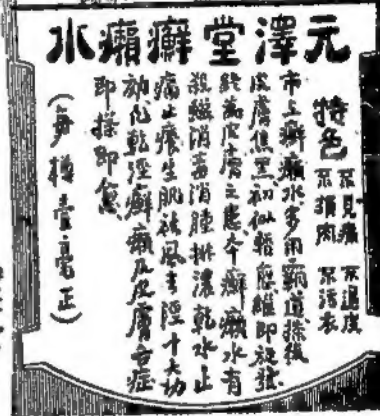 元澤堂癬癩水
特色 不見痛 不退皮 不損肉 不污衣
市上癬癩水多用霸道搽後
皮膚焦黑初似輕鬆繼即發
為皮膚之患本癬癩水有
殺蟲消毒消腫排濃乾水止
痛止癢生肌祛風去溼十大功
効凡乾溼癬癩及皮膚各症
即搽即愈
（每樽壹毫正）